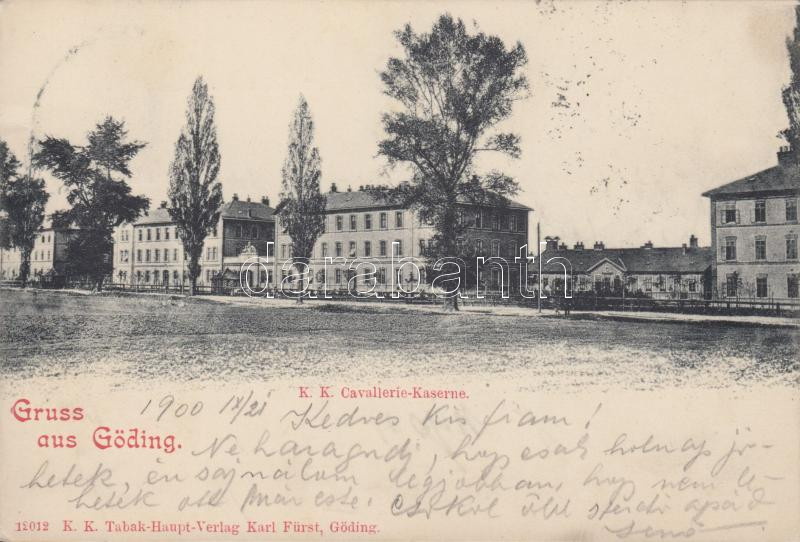 darabanth
K. K. Cavallerie-Kaserne.
Gruss
aus Göding.
1900 IX/21 Kedves kis fiam!
Ne haragudj, hogy csak holnap jö-
hetek, én sajnálom legjobban, hogy nem le-
hetek ott már este. Csókol ölel szerető apád
Jenő
12012 K. K. Tabak-Haupt-Verlag Karl Fürst, Göding.